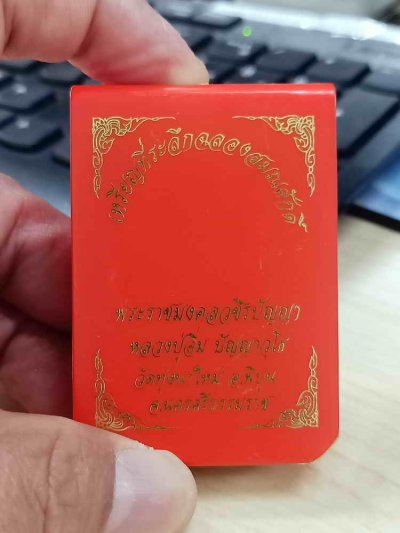 เหรียญที่ระลึกฉลองสมณศักดิ์
พระราชมงคลวชิรปัญญา
หลวงปู่จิม ปัญญาวุโธ
วัดทุ่งนาใหม่ อ.พิปูน
จ.นครศรีธรรมราช